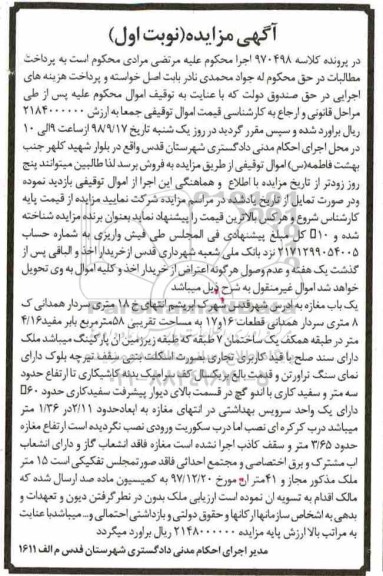 آگهی مزایده(نوبت اول)
در پرونده کلاسه ۹۷۰۴۹۸ اجرا محکوم علیه مرتضی مرادی محکوم است به پرداخت
مطالبات در حق محکوم له جواد محمدی نادر بابت اصل خواسته و پرداخت هزینه های
اجرایی در حق صندوق دولت که با عنایت به توقیف اموال محکوم علیه پس از طی
مراحل قانونی و ارجاع به کارشناسی قیمت اموال توقیفی جمعا به ارزش ۲۱۸۴۰۰۰۰۰۰
ریال براورد شده و سپس مقرر گردید در روز یک شنبه تاریخ ۹۸/۹/۱۷ ازساعت ۹الی ۱۰
در محل اجرای احکام مدنی دادگستری شهرستان قدس واقع در بلوار شهید کلهر جنب
بهشت فاطمه(س) اموال توقیفی از طریق مزایده به فروش برسد لذا طالبین میتوانند پنج
روز زودتر از تاریخ مزایده با اطلاع و هماهنگی این اجرا از اموال توقیفی بازدید نموده
ودر صورت تمایل از تاریخ یادشده در مراسم مزایده شرکت نمایند مزایده از قیمت پایه
کارشناس شروع و هرکس بالاترین قیمت را پیشنهاد نماید بعنوان برنده مزایده شناخته
شده و ۱۰ کل مبلغ پیشنهادی فی المجلس طی فیش واریزی به شماره حساب
۲۱۷۱۲۹۹۰۵۴۰۰۵ نزد بانک ملی شعبه شهرداری قدس ازخریدار اخذ و الباقی پس از
گذشت یک هفته و عدم وصول هرگونه اعتراض از خریدار اخذ و کلیه اموال به وی تحویل
خواهد شد اموال غیرمنقول به شرح ذیل میباشد
یک باب مغازه به ادرس شهرقدس شهرک ابریشم انتهای خ ۱۸ متری سردار همدانی ک
۸ متری سردار همدانی قطعات ۱۶و۱۷ به مساحت تقریبی ۵۸مترمربع بایر مفید۴/۱۶
متر در طبقه همکف یک ساختمان ۷ طبقه که طبقه زیرزمین ان پارکینگ میباشد ملک
دارای سند صلح با قید کاربری تجاری بصورت اسکلت بتنی سقف تیرچه بلوک دارای
نمای سنگ تراورتن و قدمت بالغ بریکسال کف سرامیک بدنه کاشیکاری تا ارتفاع حدود
سه متر و سفید کاری با اندو گچ در قسمت بالای دیوار پیشرفت سفیدکاری حدود ۶۰
دارای یک واحد سرویس بهداشتی در انتهای مغازه به ابعادحدود ۲/۱۱در ۱/۳۶ متر
میباشد درب کرکره ای نصب اما درب سکوریت ورودی نصب نگردیده است ارتفاع مغازه
حدود ۳/۶۵ متر و سقف کاذب اجرا نشده است مغازه فاقد انشعاب گاز و دارای انشعاب
اب مشترک و برق اختصاصی و مجتمع احداثی فاقد صورتمجلس تفکیکی است ۱۵ متر
ملک مذکور مجاز و ۴۱متر ان مورخ ۹۷/۱۲/۲۰ به کمیسیون ماده صد ارسال شده که
مالک اقدام به تسویه ان نموده است ارزیابی ملک بدون در نظرگرفتن دیون و تعهدات و
بدهی به اشخاص سازمانها ارکانها و حقوق دولتی و بازداشتی احتمالی و...میباشدبا عنایت
به مراتب بالا ارزش پایه مزایده ۲۱۴۸۰۰۰۰۰۰ ریال براورد میگردد
مدیر اجرای احکام مدنی دادگستری شهرستان قدس م الف ۱۶۱۱